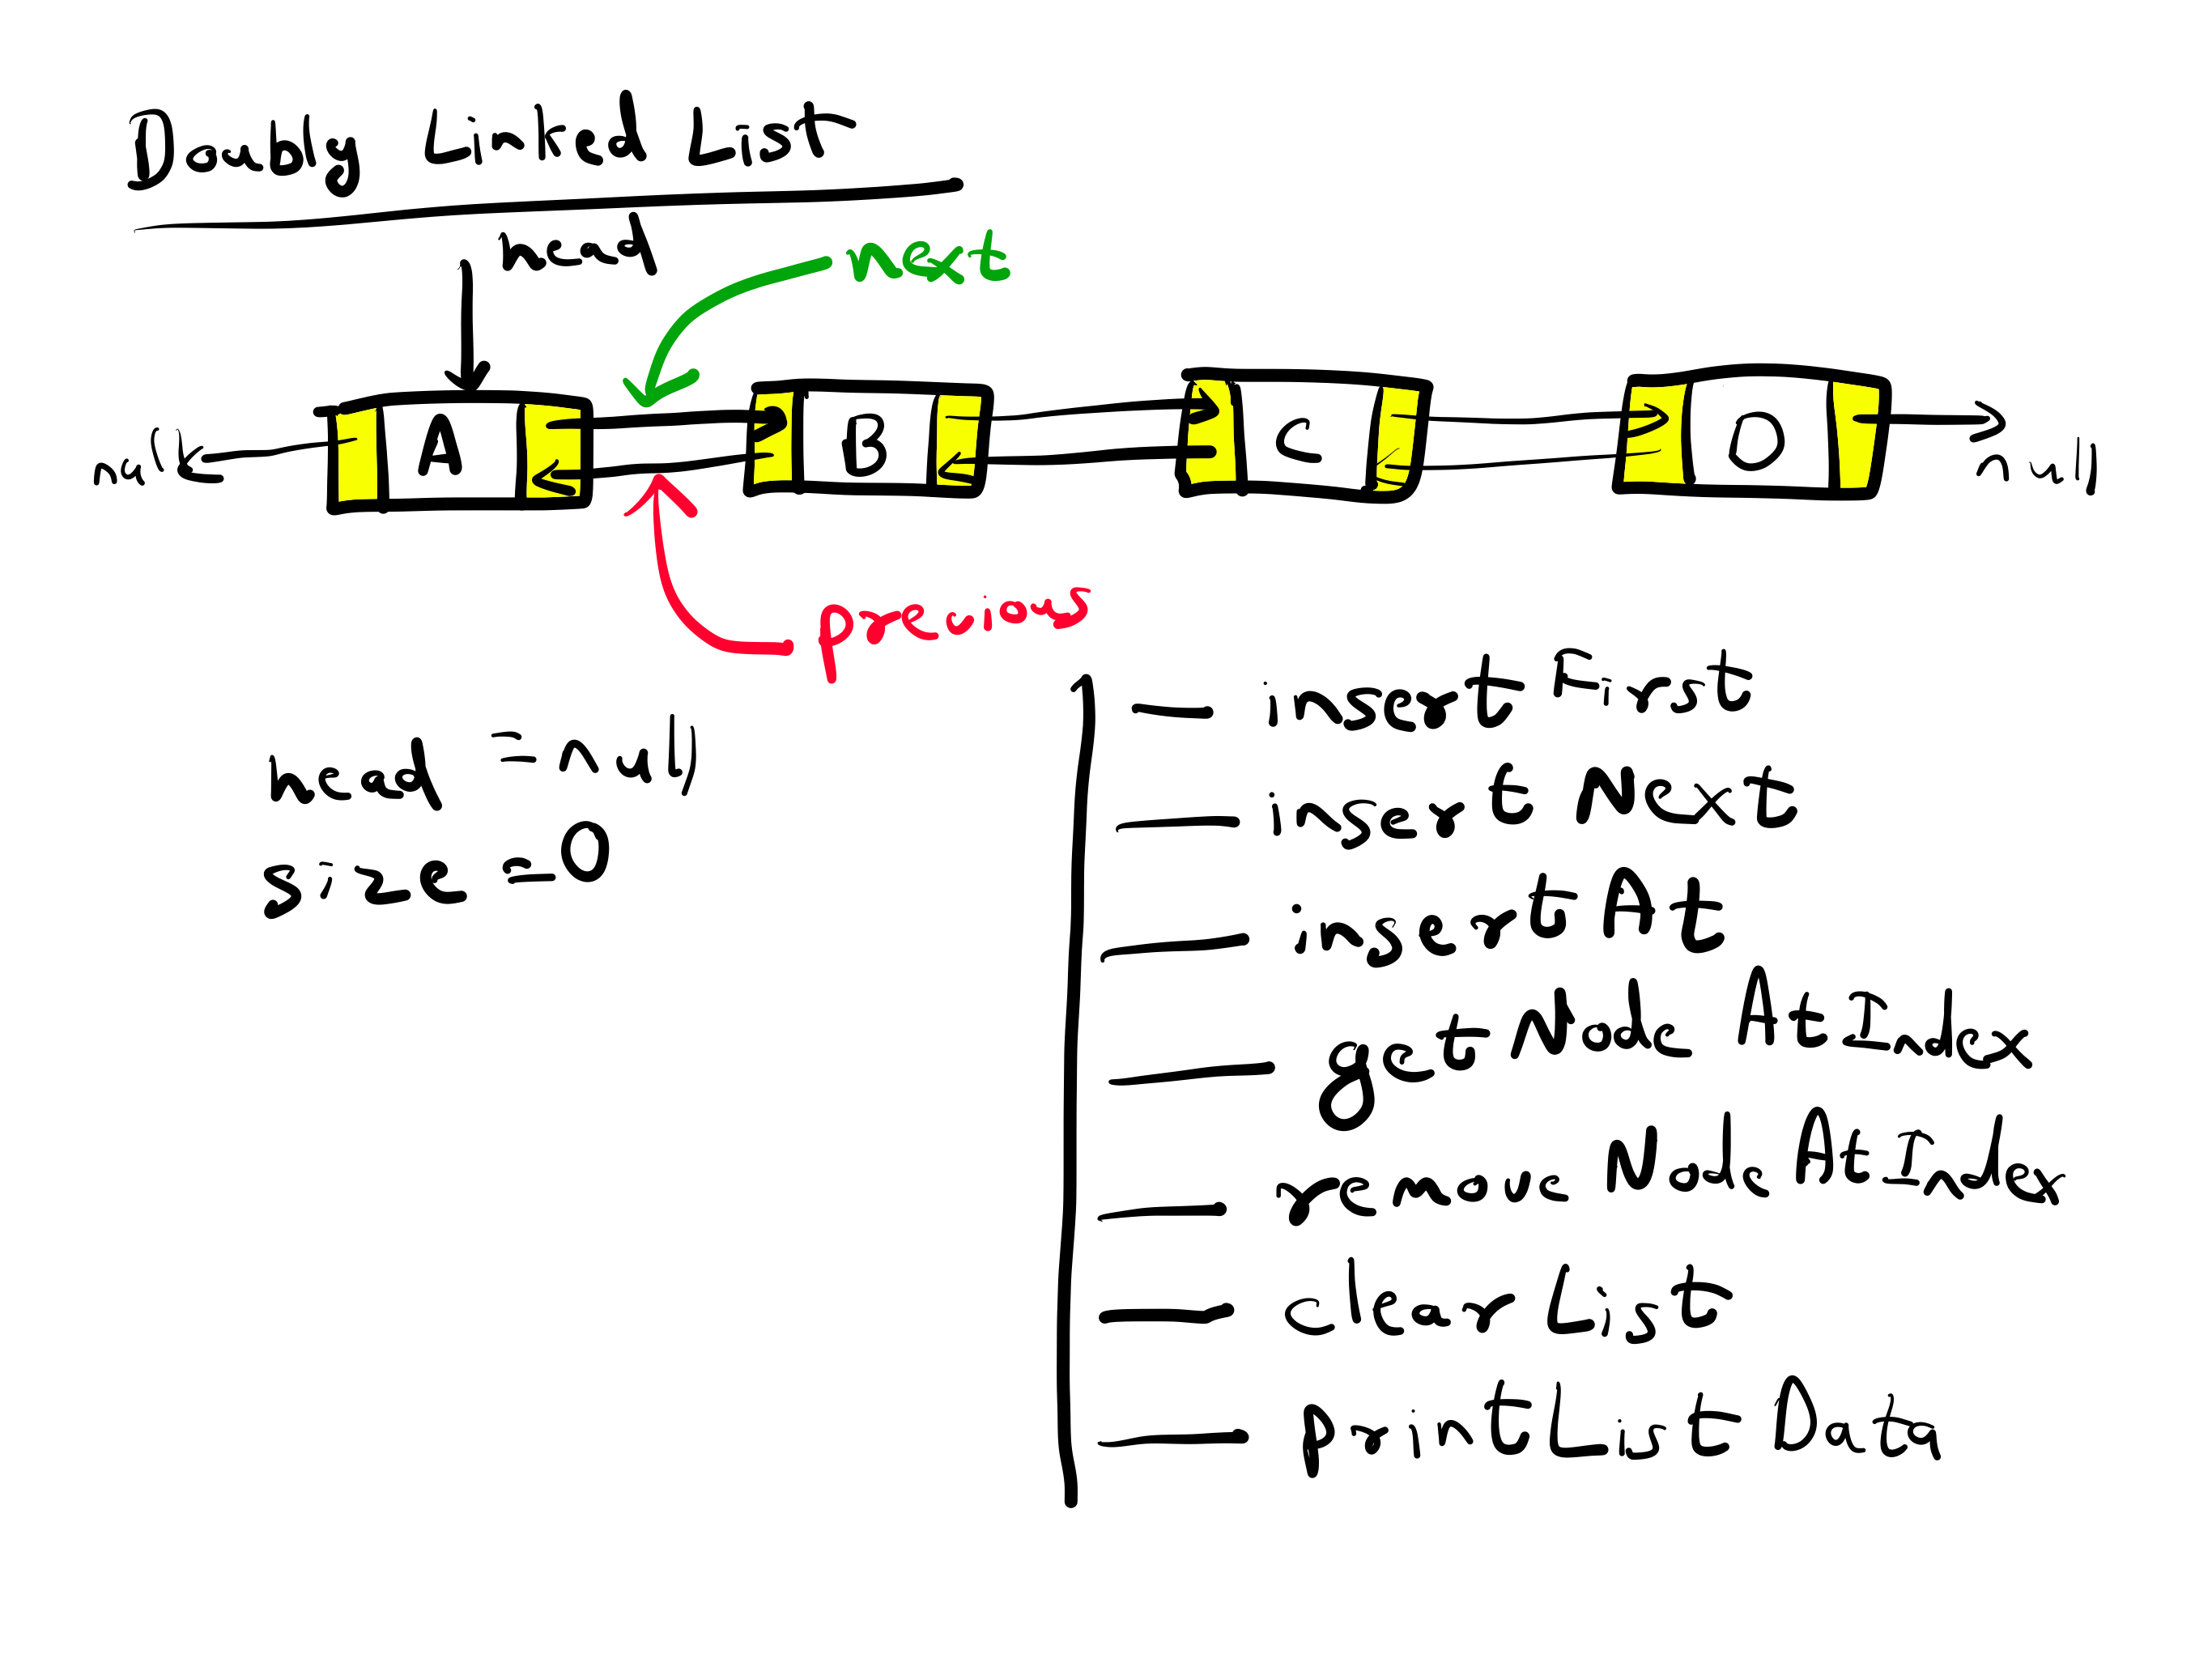 Doubly Linked List
head
next
null A B C D null
previous
head = null
size = 0
— insertFirst
— insertNext
— insertAt
— getNodeAtIndex
— removeNodeAtIndex
— clearList
— printListData